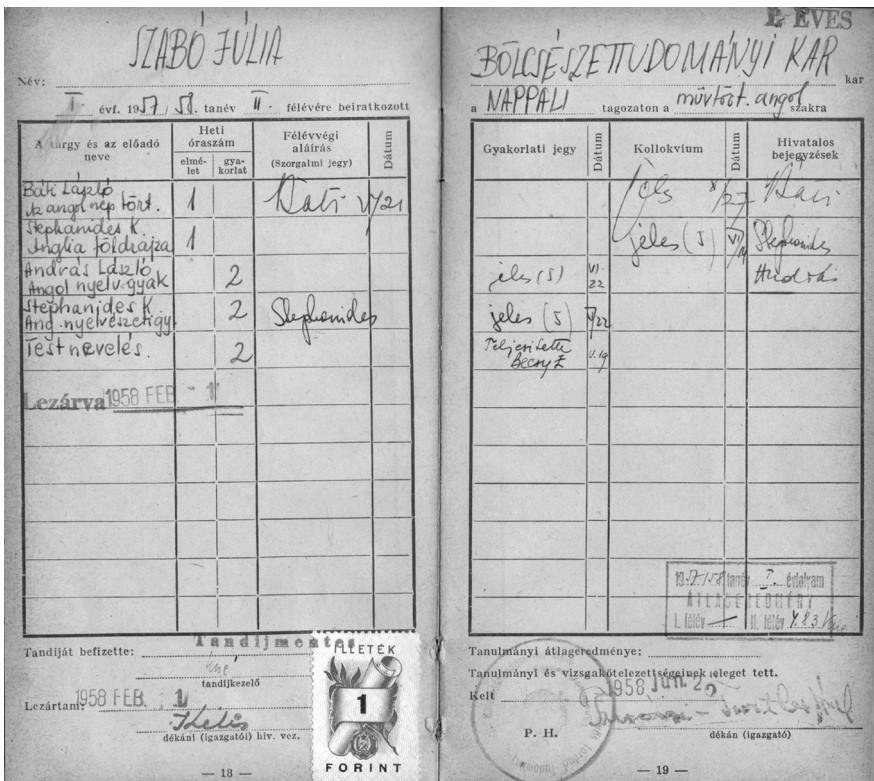 SZABÓ JÚLIA
Név:
I. évf. 1957/58. tanév II. félévére beiratkozott
A tárgy és az előadó neve
Heti óraszám
elmélet
gyakorlat
Félévvégi aláírás
(Szorgalmi jegy)
Dátum
Báti László
Az angol nép tört. 1 V/21
Stephanides K.
Anglia földrajza 1
András László
Angol nyelv.gyak 2
Stephanides K
Ang. nyelvészeti gy. 2 Stephanides
Testnevelés. 2
Lezárva 1958 FEB. - 1
Tandíjmentes
Tandíját befizette:
tandíjkezelő
Lezártam: 1958 FEB. 1
dékáni (igazgatói) hiv. vez.
ILLETÉK
1
FORINT
— 18 —
I. ÉVES
BÖLCSÉSZETTUDOMÁNYI KAR kar
a NAPPALI tagozaton a művtört. angol szakra
Gyakorlati jegy
Dátum
Kollokvium
Dátum
Hivatalos bejegyzések
jeles (5) VI/14 Stephanides
jeles (5) VI. 22 András
jeles (5) V/22
Teljesítette
V. 19
1957/58 tanév I. évfolyam
ÁTLAGEREDMÉNY
I. félév — II. félév 4.83
Tanulmányi átlageredménye:
Tanulmányi és vizsgakötelezettségeinek eleget tett.
Kelt 1958 JUN. 25
P. H.
dékán (igazgató)
— 19 —